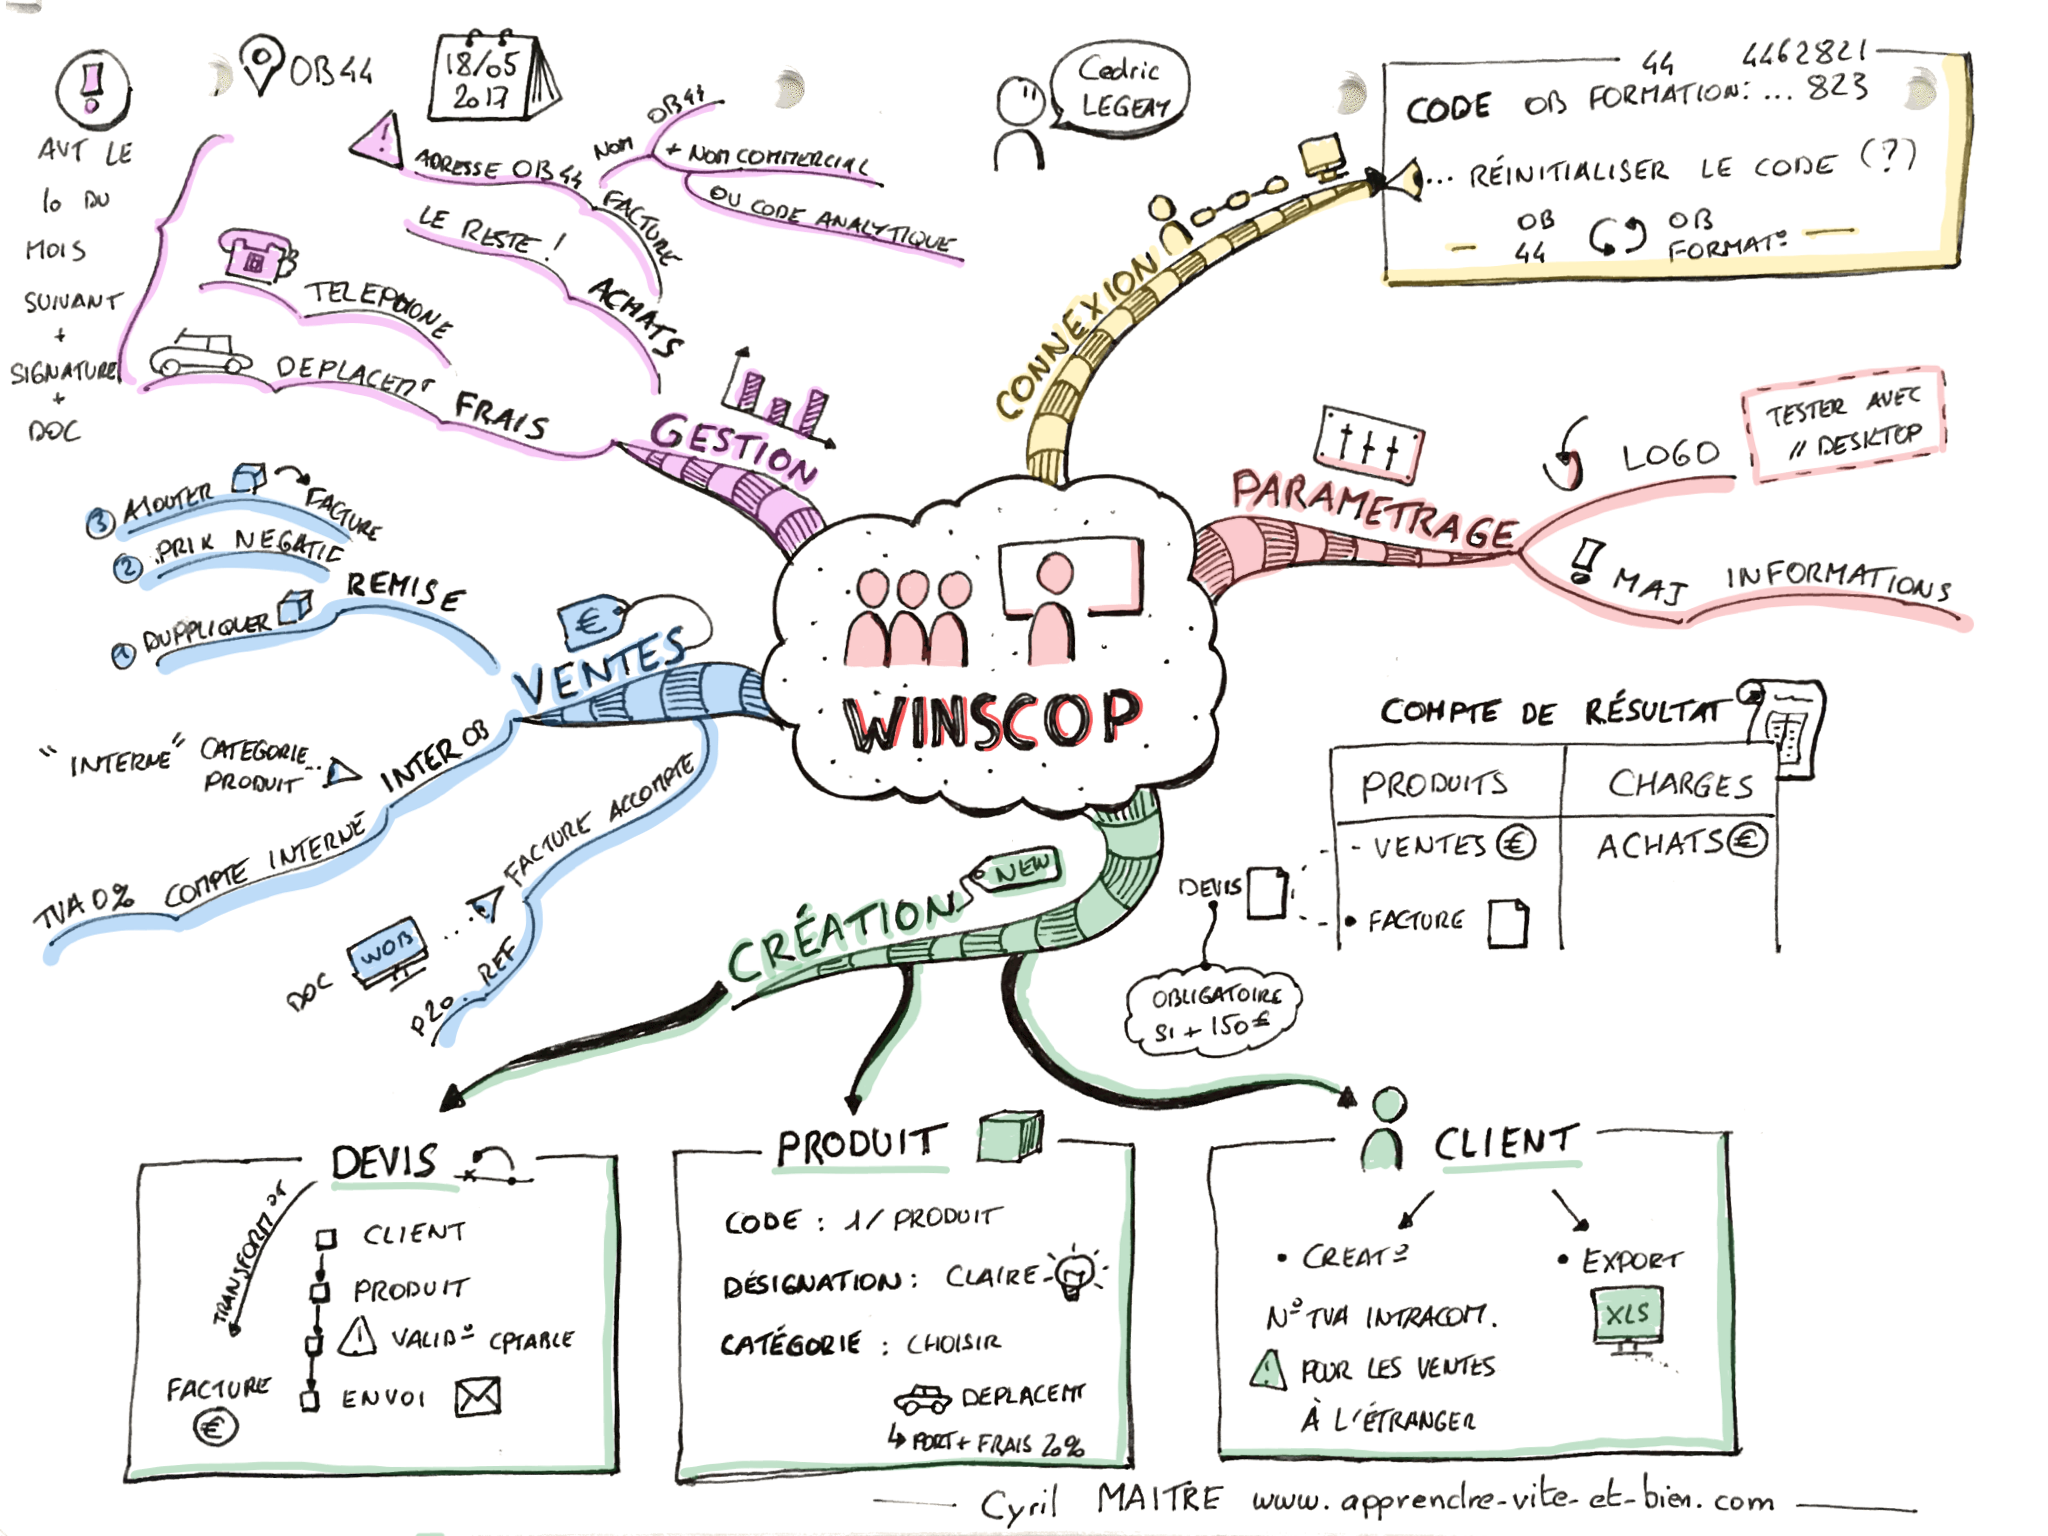 OB44
18/05
2017
Cedric
LEGEAY
44 4462821
CODE OB FORMATION: ... 823
... RÉINITIALISER LE CODE (?)
OB
44
OB
FORMAT°
AVT LE
10 DU
MOIS
SUIVANT
+
SIGNATURE
+
DOC
ADRESSE OB44
FACTURE
NOM
OB44
+ NOM COMMERCIAL
OU CODE ANALYTIQUE
LE RESTE !
ACHATS
TELEPHONE
DEPLACEMT
FRAIS
GESTION
CONNEXION
PARAMETRAGE
LOGO
TESTER AVEC
// DESKTOP
MAJ INFORMATIONS
3 AJOUTER
FACTURE
2 PRIX NEGATIF
1 DUPPLIQUER
REMISE
€
VENTES
WINSCOP
INTER OB
"INTERNE" CATEGORIE
PRODUIT...
TVA 0% COMPTE INTERNE
FACTURE ACCOMPTE
DOC
WOB
P20.. REF
COMPTE DE RÉSULTAT
PRODUITS
CHARGES
- VENTES €
ACHATS €
• FACTURE
DEVIS
OBLIGATOIRE
SI + 150€
CRÉATION
NEW
DEVIS
TRANSFORMAT°
CLIENT
PRODUIT
VALID° CPTABLE
ENVOI
FACTURE
€
PRODUIT
CODE : 1/ PRODUIT
DÉSIGNATION : CLAIRE
CATÉGORIE : CHOISIR
DEPLACEMT
PORT + FRAIS 20%
CLIENT
• CREAT°
N° TVA INTRACOM.
POUR LES VENTES
À L'ÉTRANGER
• EXPORT
XLS
Cyril MAITRE www.apprendre-vite-et-bien.com